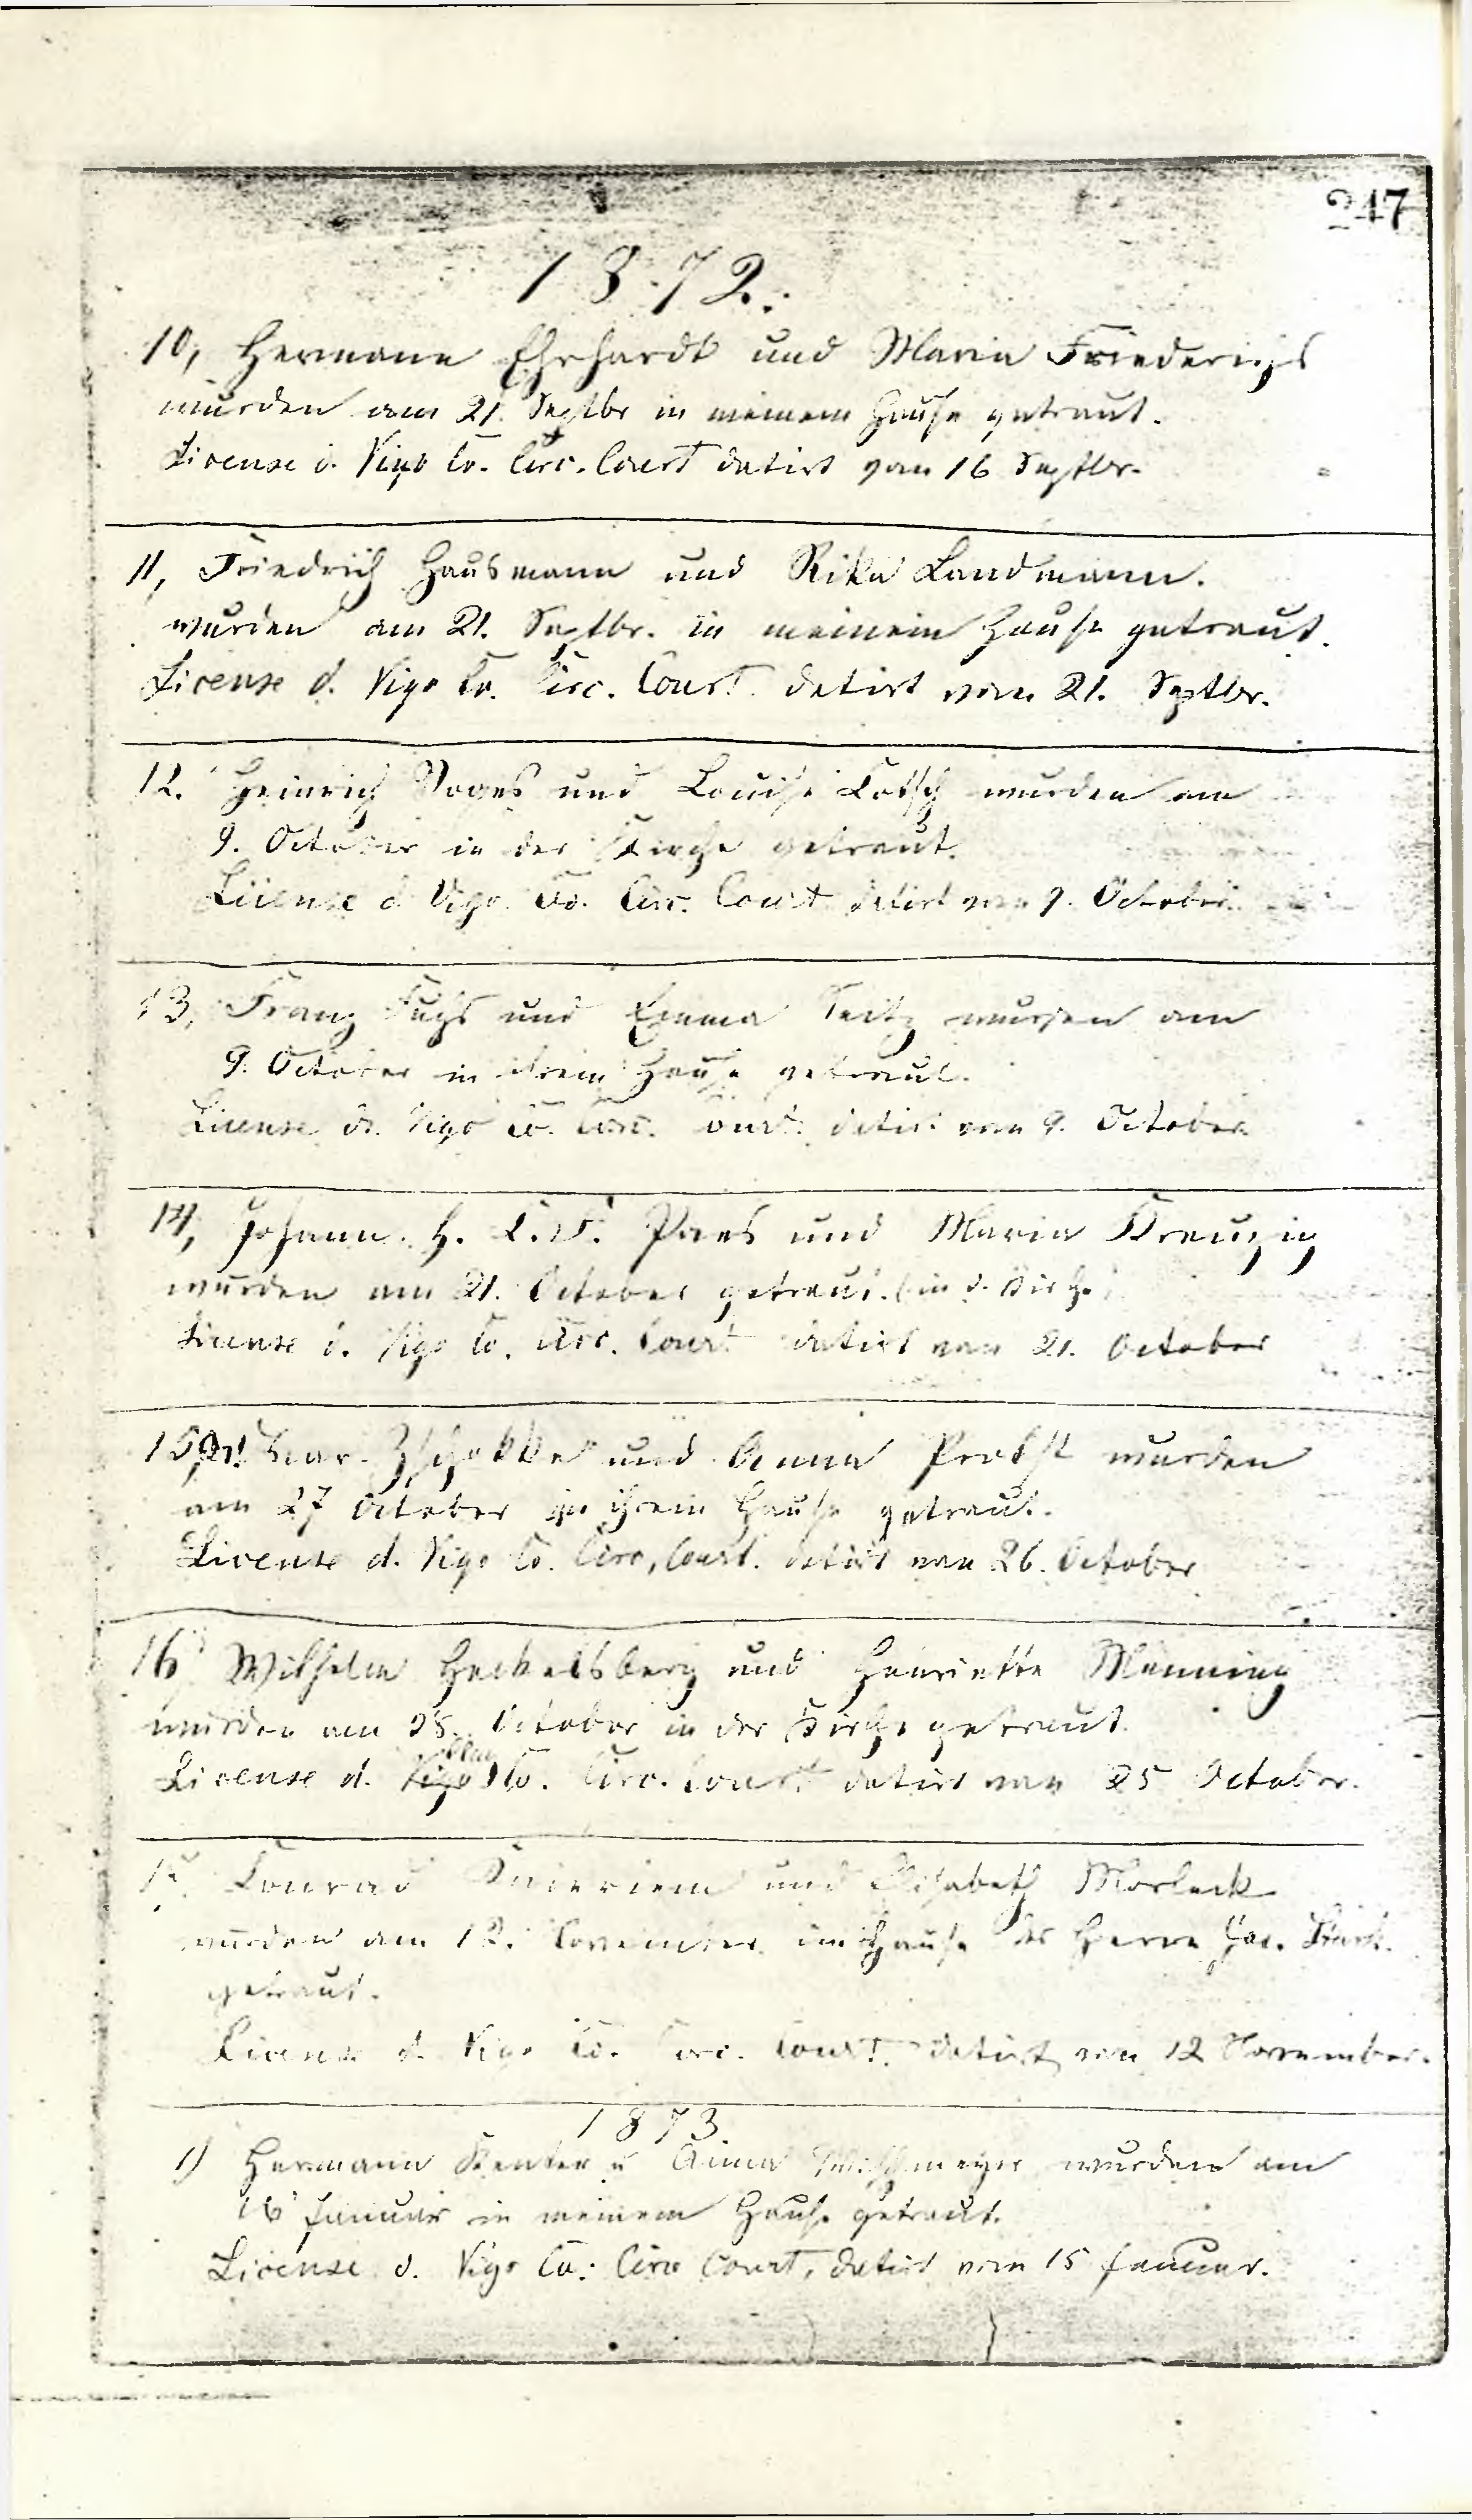 247
1872.
10, Hermann Ehrhardt und Maria Friederichs
wurden am 21. Septbr in meinem Hause getraut.
License d. Vigo Co. Circ. Court datirt vom 16 Septbr.
11, Friedrich Hausmann und Rika Landmann.
wurden am 21. Septbr. in meinem Hause getraut.
License d. Vigo Co. Circ. Court datirt vom 21. Septbr.
12. Heinrich Voges und Louise Lotsch wurden am
9. October in der Kirche getraut.
License d Vigo Co. Circ. Court datirt vom 9. October
13, Franz Fuchs und Emma Seitz wurden am
9. October in ihrem Hause getraut.
License d. Vigo Co. Circ. Court. datirt vom 9. October
14, Johann. H. L. Paes und Maria Kreuzig
wurden am 21. October getraut. (in d. Kirche)
License d. Vigo Co. Circ. Court datirt vom 21. October
15, Zschokke und Anna Probst wurden
am 27 October in ihrem Hause getraut.
License d. Vigo Co. Circ, Court. datirt vom 26. October
16 Wilhelm Heckelsberg und Henriette Menning
wurden am 25. October in der Kirche getraut.
License d. Vigo Clay Co. Circ. Court datirt vom 25 October.
17. Conrad und Elisabeth Morlock
wurden am 12. November im Hause des Herrn
getraut.
License d. Vigo Co. Circ. Court. datirt vom 12 November.
1873.
1) Hermann Kenter u Anna wurden am
16 Januar in meinem Hause getraut.
License d. Vigo Co. Circ Court, datirt vom 15 Januar.